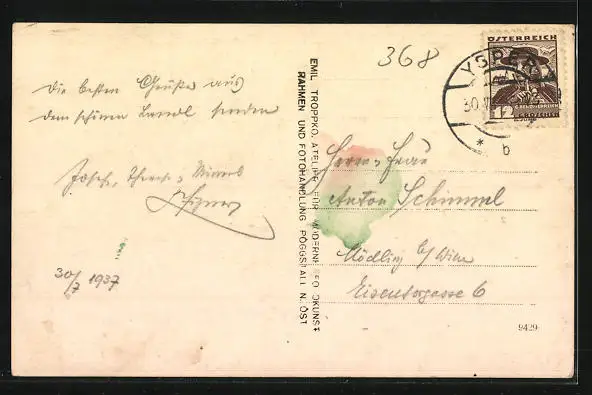 368
ÖSTERREICH
12
GROSCHEN
YSPER
30
* b
Die besten Grüße aus
dem schönen Landl senden
Josef,
30/7 1937
EMIL TROPPKO, ATELIER FÜR MODERNE FOTOKUNST
RAHMEN UND FOTOHANDLUNG PÖGGSTALL N. ÖST
Herrn u Frau
Anton Schimmel
Mödling b/Wien
Eisentorgasse 6
9429